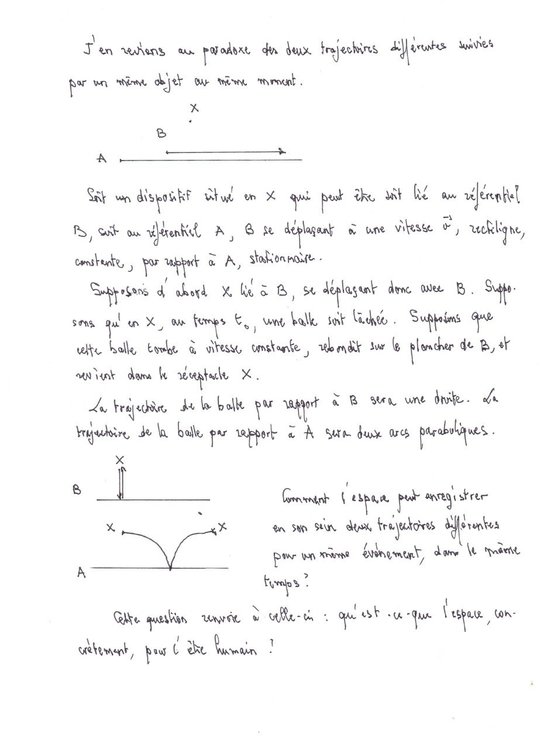 J'en reviens au paradoxe des deux trajectoires différentes suivies
par un même objet au même moment.
X
B
A
Soit un dispositif situé en X qui peut être soit lié au référentiel
B, soit au référentiel A, B se déplaçant à une vitesse v⃗, rectiligne,
constante, par rapport à A, stationnaire.
Supposons d'abord X lié à B, se déplaçant donc avec B. Suppo-
sons qu'en X, au temps t₀, une balle soit lâchée. Supposons que
cette balle tombe à vitesse constante, rebondit sur le plancher de B, et
revient dans le réceptacle X.
La trajectoire de la balle par rapport à B sera une droite. La
trajectoire de la balle par rapport à A sera deux arcs paraboliques.
X
B
X X
A
Comment l'espace peut enregistrer
en son sein deux trajectoires différentes
pour un même événement, dans le même
temps?
Cette question renvoie à celle-ci : qu'est-ce-que l'espace, con-
crètement, pour l'être humain ?